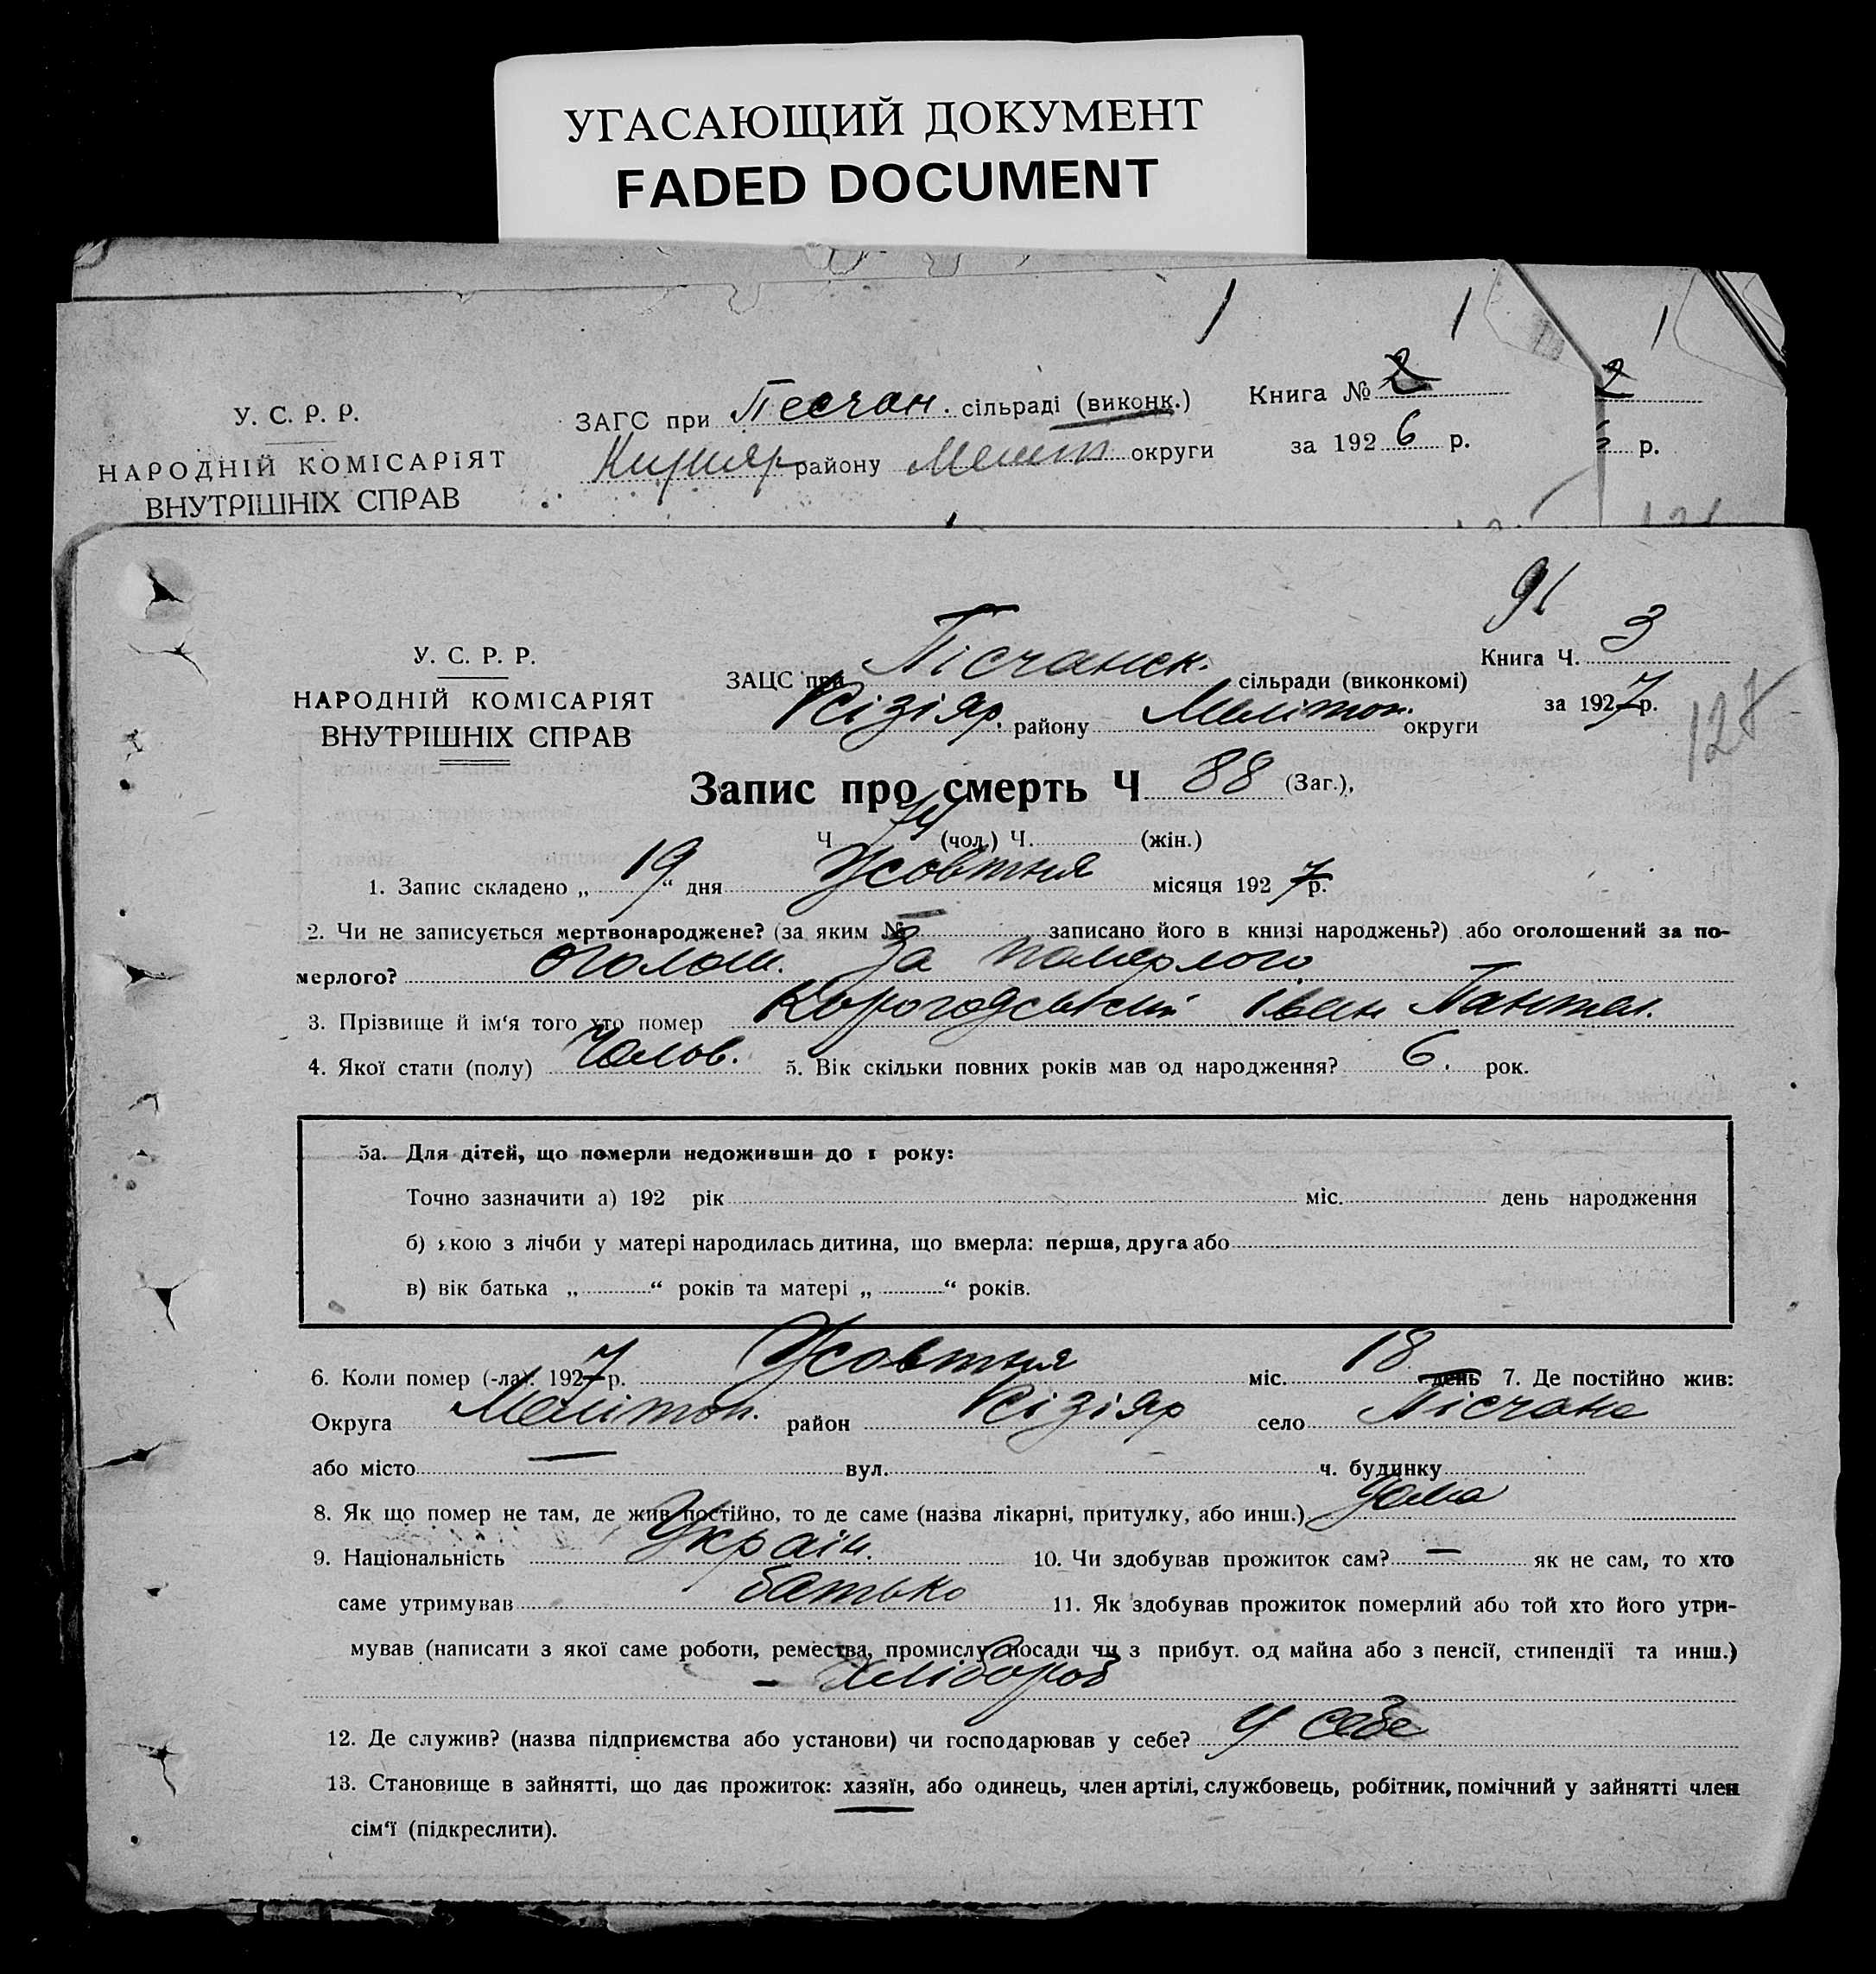 УГАСАЮЩИЙ ДОКУМЕНТ
FADED DOCUMENT
У. С. Р. Р.
НАРОДНІЙ КОМІСАРІЯТ
ВНУТРІШНІХ СПРАВ
ЗАГС при Песчан. сільраді (виконк.)
району Меліт округи
Книга № 2
за 1926 р.
2
р.
91
У. С. Р. Р.
НАРОДНІЙ КОМІСАРІЯТ
ВНУТРІШНІХ СПРАВ
ЗАЦС при Пісчанск. сільради (виконкомі)
Кізіяр. району Мелітоп. округи
Книга Ч. 3
за 1927 р.
128
Запис про смерть Ч 88 (Заг.),
Ч 44 (чол.) Ч. (жін.)
1. Запис складено „ 19 “ дня Жовтня місяця 1927 р.
2. Чи не записується мертвонароджене? (за яким № — записано його в книзі народжень?) або оголошений за по-
мерлого? оголош. за померлого
3. Прізвище й ім‘я того хто помер Корогодський Іван Пантел.
4. Якої стати (полу) Чолов. 5. Вік скільки повних років мав од народження? 6. рок.
5а. Для дітей, що померли недоживши до 1 року:
Точно зазначити а) 192 рік міс. день народження
б) якою з лічби у матері народилась дитина, що вмерла: перша, друга або
в) вік батька „ “ років та матері „ “ років.
6. Коли помер (-ла). 1927 р. Жовтня міс. 18 день 7. Де постійно жив:
Округа Мелітоп. район Кізіяр село Пісчане
або місто — вул. ч. будинку
8. Як що помер не там, де жив постійно, то де саме (назва лікарні, притулку, або инш.) дома
9. Національність Украін. 10. Чи здобував прожиток сам? — як не сам, то хто
саме утримував батько 11. Як здобував прожиток померлий або той хто його утри-
мував (написати з якої саме роботи, ремества, промислу посади чи з прибут. од майна або з пенсії, стипендії та инш.)
- хлібороб
12. Де служив? (назва підприємства або установи) чи господарював у себе? у себе
13. Становище в зайнятті, що дає прожиток: хазяїн, або одинець, член артілі, службовець, робітник, помічний у зайнятті член
сім‘ї (підкреслити).